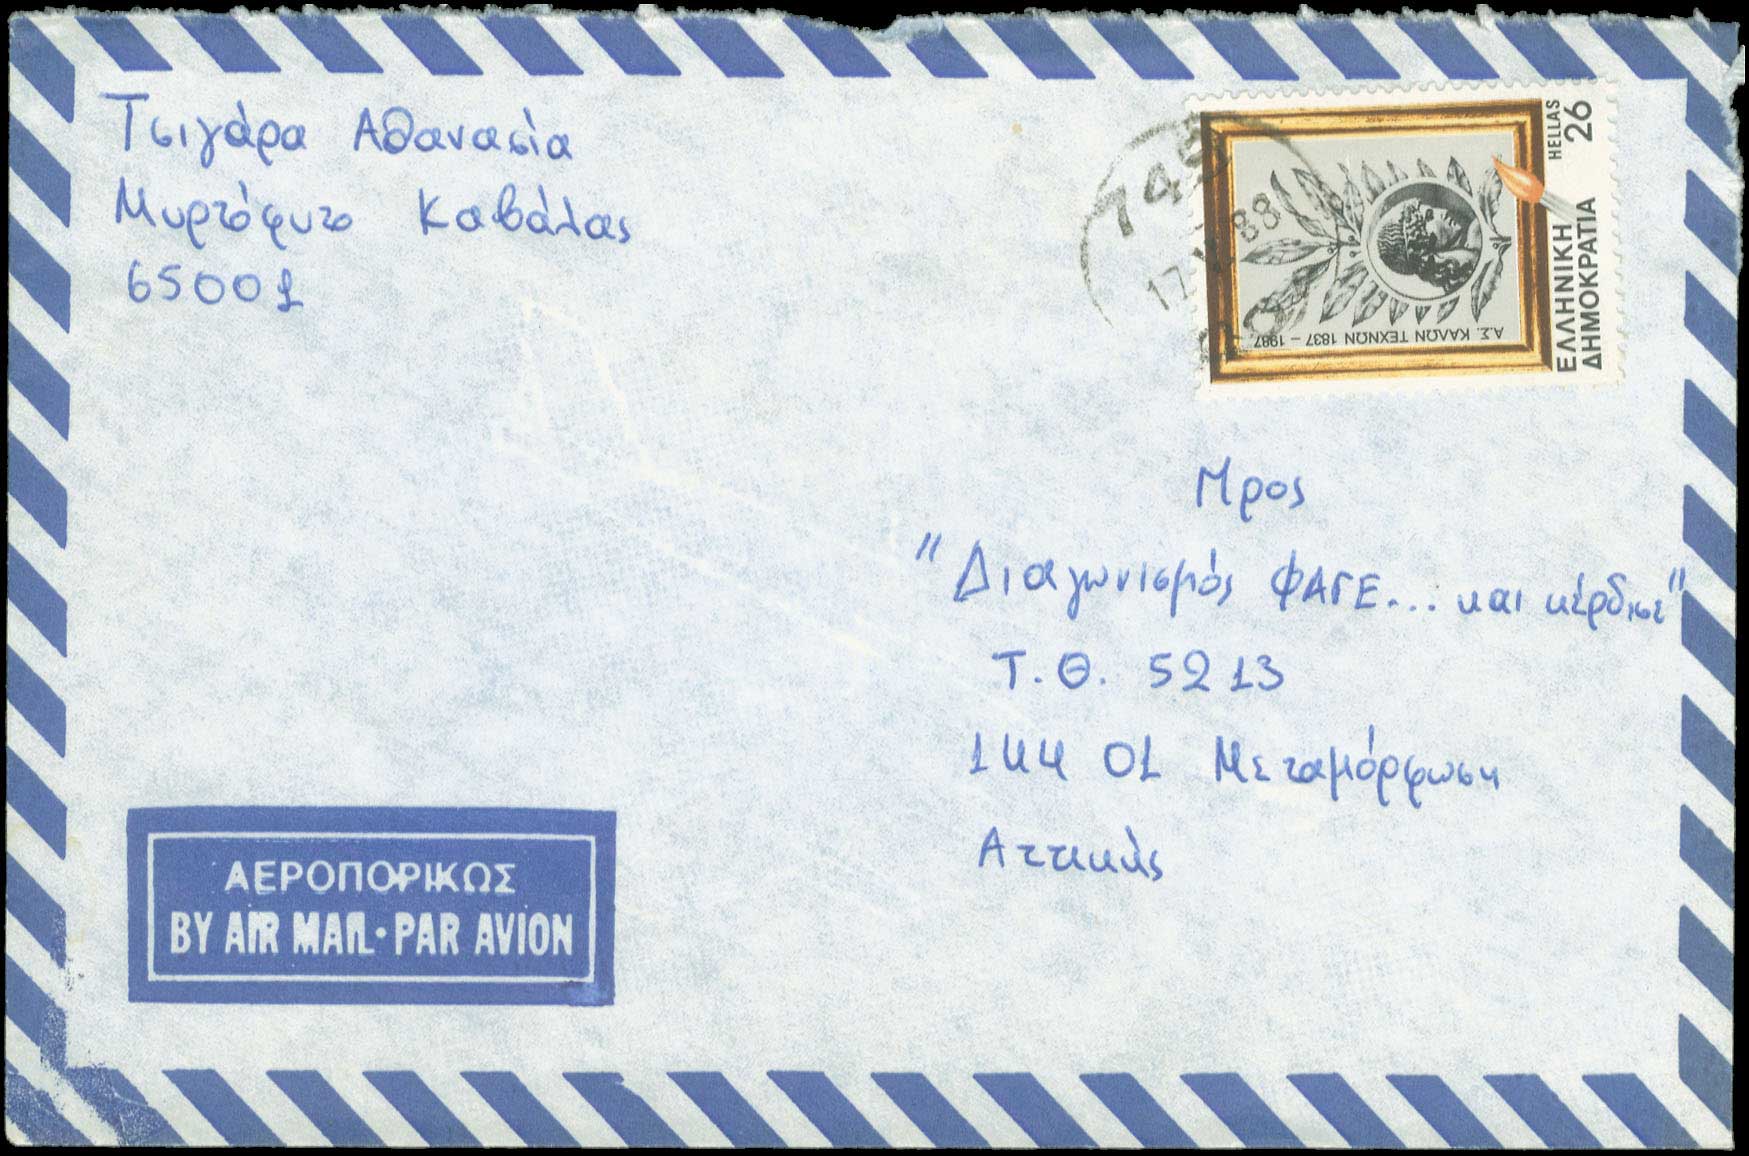 Τσιγάρα Αθανασία
Μυρτόφυτο Καβάλας
65001
745
17 88
HELLAS 26
ΕΛΛΗΝΙΚΗ
ΔΗΜΟΚΡΑΤΙΑ
Α.Σ. ΚΑΛΩΝ ΤΕΧΝΩΝ 1837 - 1987
Προς
"Διαγωνισμός ΦΑΓΕ... και κέρδισε"
Τ.Θ. 5213
144 01 Μεταμόρφωση
Αττικής
ΑΕΡΟΠΟΡΙΚΩΣ
BY AIR MAIL·PAR AVION